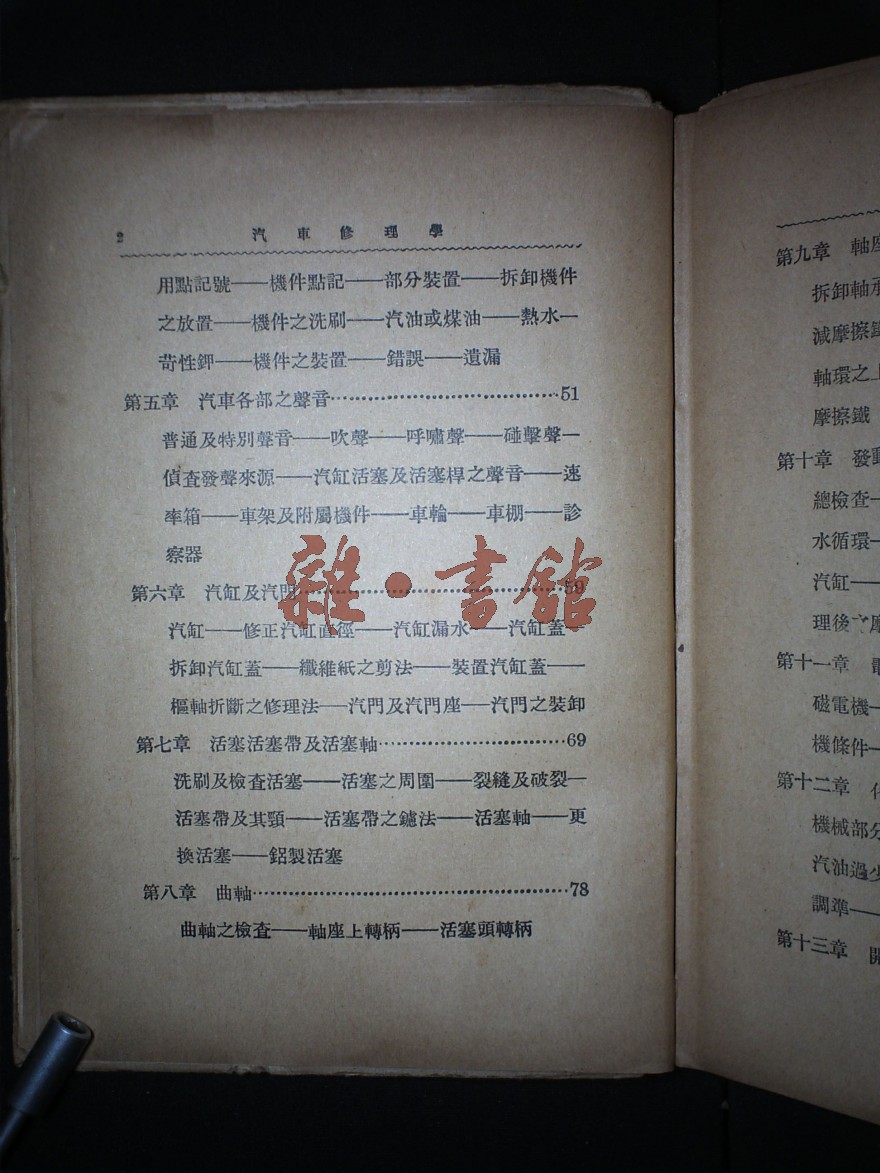 2 汽車修理學
用點記號——機件點記——部分裝置——拆卸機件
之放置——機件之洗刷——汽油或煤油——熱水—
苛性鉀——機件之裝置——錯誤——遺漏
第五章 汽車各部之聲音……………………………51
普通及特別聲音——吹聲——呼嘯聲——碰擊聲—
偵查發聲來源——汽缸活塞及活塞桿之聲音——速
率箱——車架及附屬機件——車輪——車棚——診
察器
第六章 汽缸及汽門……………………………59
汽缸——修正汽缸直徑——汽缸漏水——汽缸蓋—
拆卸汽缸蓋——纖維紙之剪法——裝置汽缸蓋——
樞軸折斷之修理法——汽門及汽門座——汽門之裝卸
第七章 活塞活塞帶及活塞軸……………………69
洗刷及檢查活塞——活塞之周圍——裂縫及破裂—
活塞帶及其頸——活塞帶之鑢法——活塞軸——更
換活塞——鋁製活塞
第八章 曲軸……………………………………78
曲軸之檢查——軸座上轉柄——活塞頭轉柄
雜·書舘
第九章 軸座
拆卸軸承
減摩擦鐵
軸環之上
摩擦鐵
第十章 發動
總檢查—
水循環—
汽缸—
理後之摩
第十一章 電
磁電機—
機條件—
第十二章
機械部分
汽油過少
調準——
第十三章 開